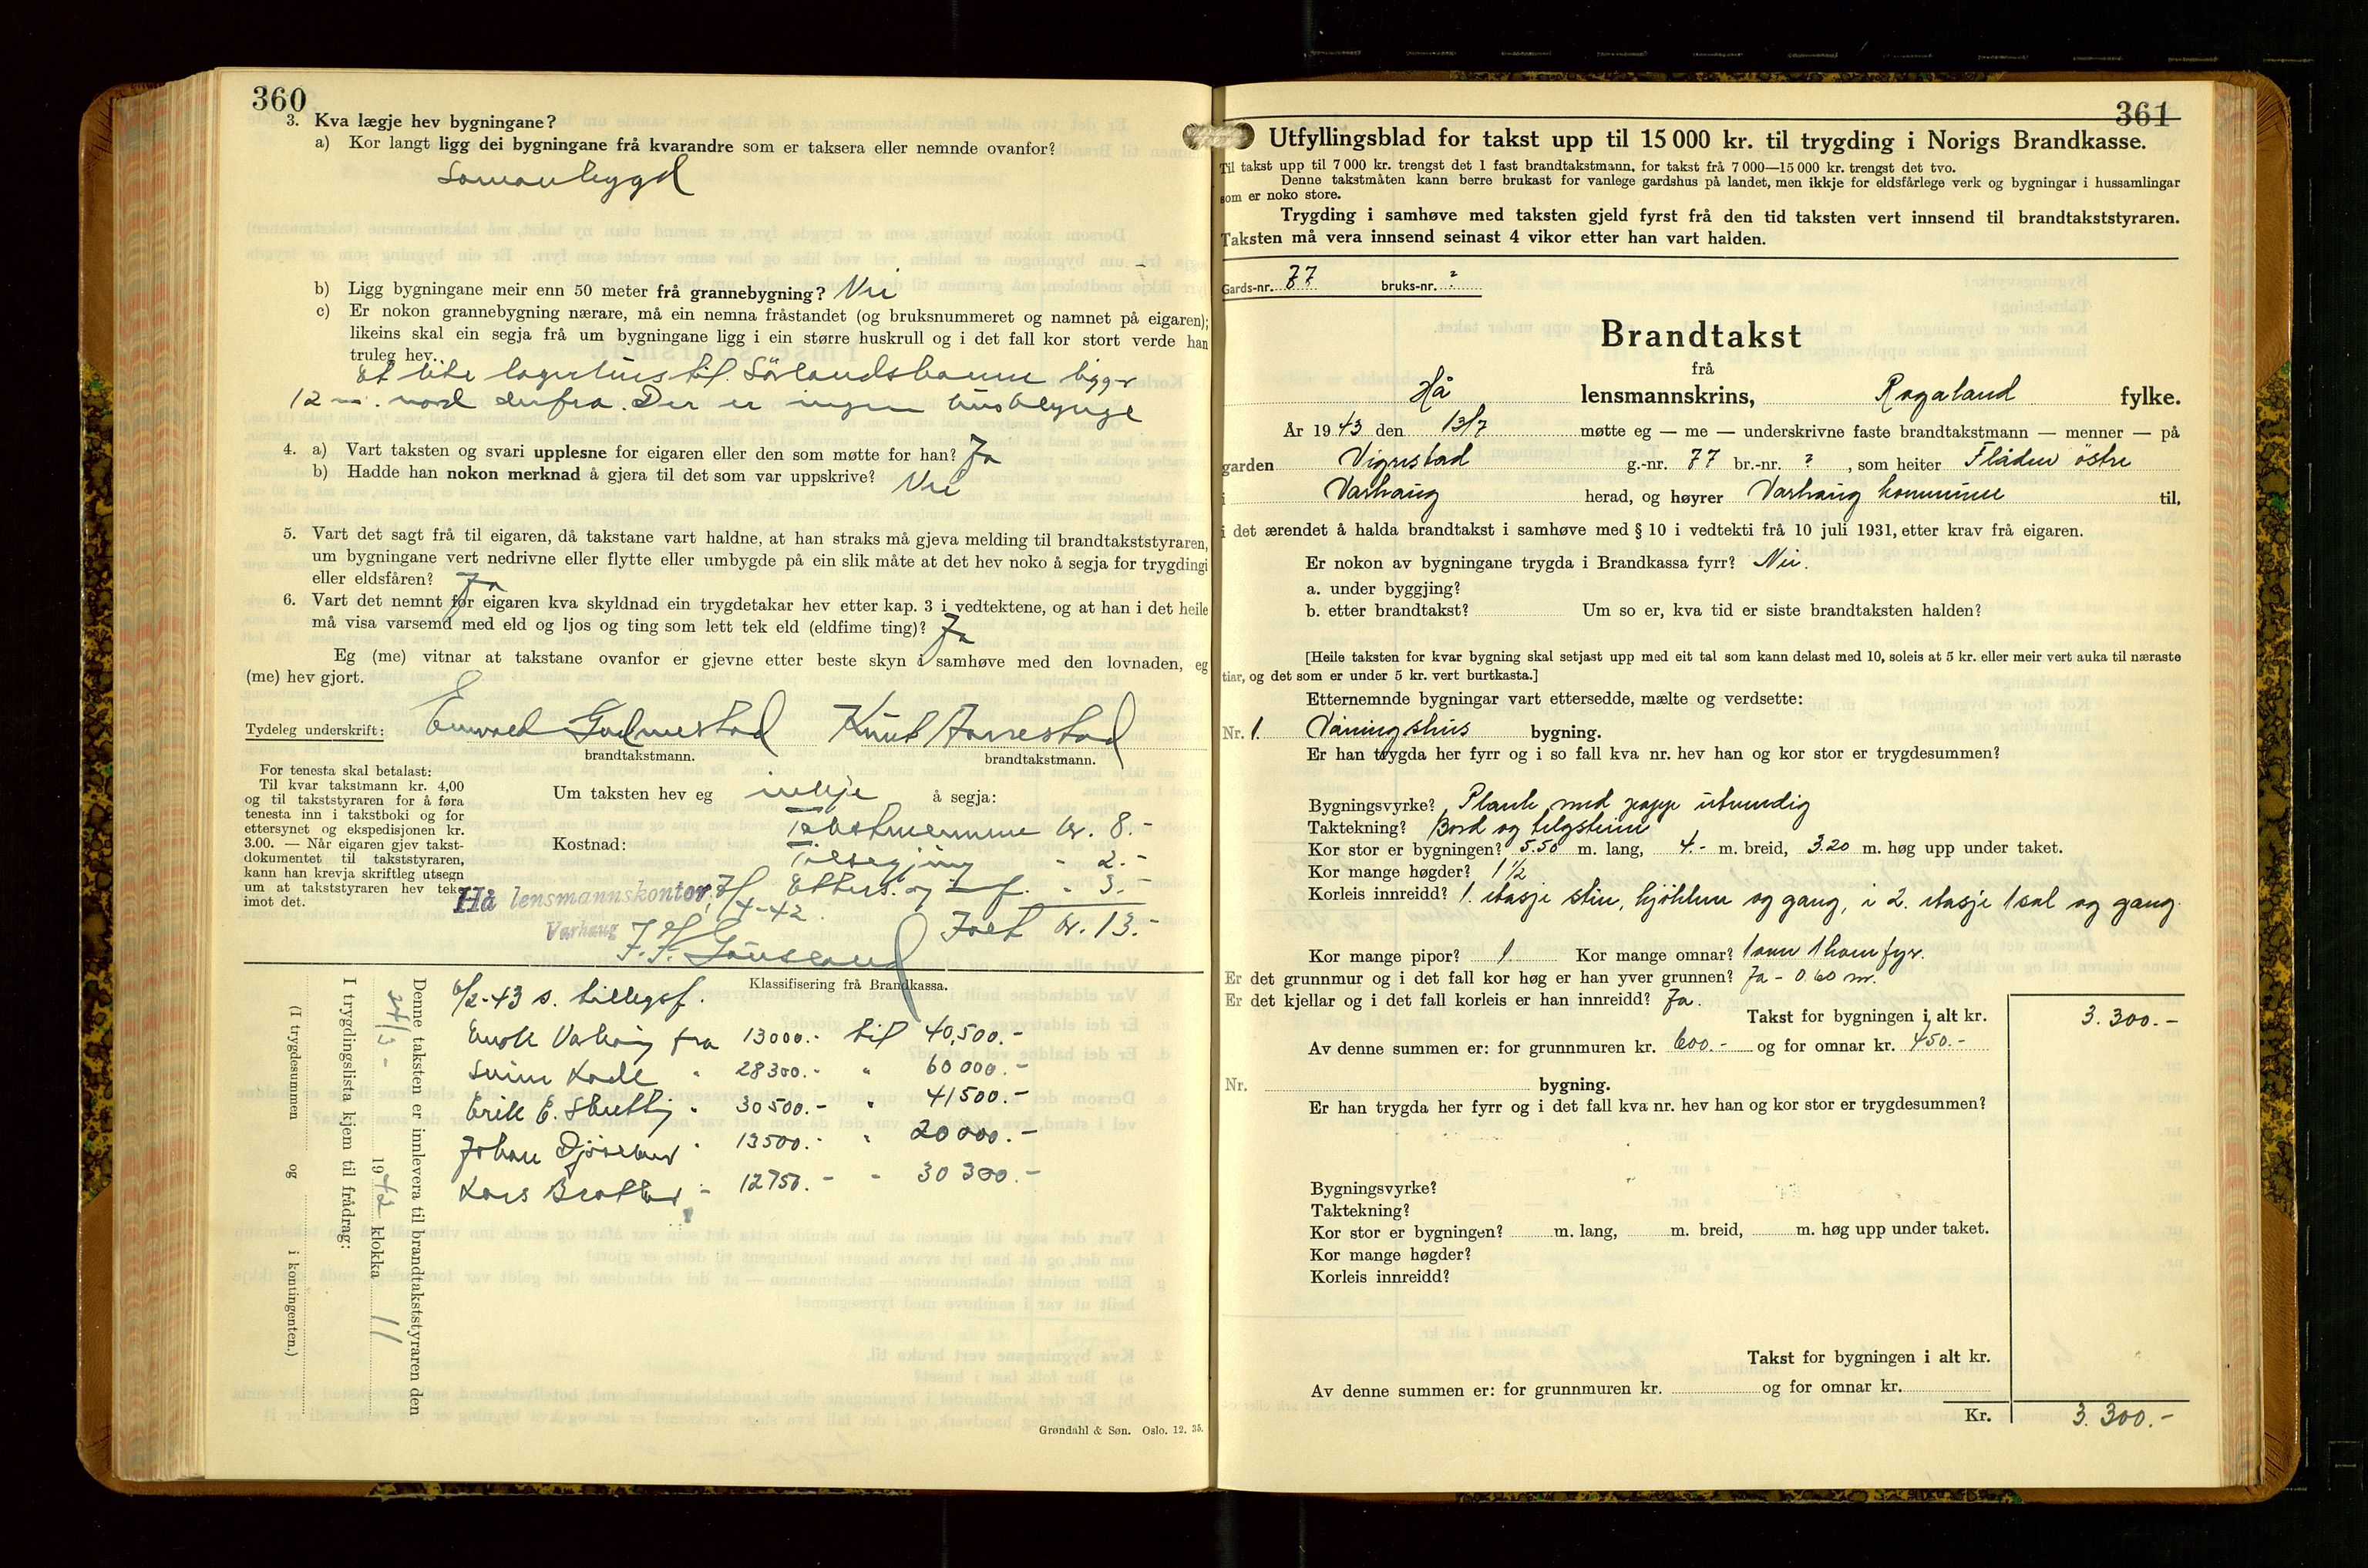 360
3. Kva lægje hev bygningane?
a) Kor langt ligg dei bygningane frå kvarandre som er taksera eller nemnde ovanfor?
Samanbygd
b) Ligg bygningane meir enn 50 meter frå grannebygning? Nei
c) Er nokon grannebygning nærare, må ein nemna fråstandet (og bruksnummeret og namnet på eigaren);
likeins skal ein segja frå um bygningane ligg i ein større huskrull og i det fall kor stort verde han
truleg hev.
Et lite lagerhus til Sørlandsbanen ligg
12 m. nord derfra. Der er ingen husklynge
4. a) Vart taksten og svari upplesne for eigaren eller den som møtte for han? Ja
b) Hadde han nokon merknad å gjera til det som var uppskrive? Nei
5. Vart det sagt frå til eigaren, då takstane vart haldne, at han straks må gjeva melding til brandtakststyraren,
um bygningane vert nedrivne eller flytte eller umbygde på ein slik måte at det hev noko å segja for trygdingi
eller eldsfåren? Ja
6. Vart det nemnt for eigaren kva skyldnad ein trygdetakar hev etter kap. 3 i vedtektene, og at han i det heile
må visa varsemd med eld og ljos og ting som lett tek eld (eldfime ting)? Ja
Eg (me) vitnar at takstane ovanfor er gjevne etter beste skyn i samhøve med den lovnaden, eg
(me) hev gjort.
Tydeleg underskrift: Enevald Gudmestad Knut Aarrestad
brandtakstmann. brandtakstmann.
For tenesta skal betalast:
Til kvar takstmann kr. 4,00
og til takststyraren for å føra
tenesta inn i takstboki og for
ettersynet og ekspedisjonen kr.
3.00. — Når eigaren gjev takst-
dokumentet til takststyraren,
kann han krevja skriftleg utsegn
um at takststyraren hev teke
imot det.
Um taksten hev eg inkje å segja:
Kostnad: Takstmennene kr. 8.-
Tilsegjing - 2.-
Etters. og innf. - 3.-
Ialt kr. 13.-
Hå lensmannskontor, 7/4-42.
Varhaug
Klassifisering frå Brandkassa.
6/2-43 s. tilleggsf.
Enok Varhaug fra 13000.- til 40,500.-
Sveine Kade " 28300.- " 60000.-
Erik E. " 30500.- " 41500.-
Johan " 13500.- " 20000.-
Lars Bratland - 12750.- - 30300.-
Denne taksten er innlevera til brandtakststyraren den
24/3 - 1942 klokka 11
I trygdingslista kjem til frådrag:
(I trygdesummen og i kontingenten.)
Grøndahl & Søn. Oslo. 12. 35.
361
Utfyllingsblad for takst upp til 15 000 kr. til trygding i Norigs Brandkasse.
Til takst upp til 7 000 kr. trengst det 1 fast brandtakstmann, for takst frå 7 000—15 000 kr. trengst det tvo.
Denne takstmåten kann berre brukast for vanlege gardshus på landet, men ikkje for eldsfårlege verk og bygningar i hussamlingar
som er noko store.
Trygding i samhøve med taksten gjeld fyrst frå den tid taksten vert innsend til brandtakststyraren.
Taksten må vera innsend seinast 4 vikor etter han vart halden.
Gards-nr. 77 bruks-nr. ?
Brandtakst
frå
Hå lensmannskrins, Rogaland fylke.
År 1943 den 13/7 møtte eg — me — underskrivne faste brandtakstmann — menner — på
garden Vigrestad g.-nr. 77 br.-nr. ?, som heiter Flåden østre
i Varhaug herad, og høyrer Varhaug kommune til,
i det ærendet å halda brandtakst i samhøve med § 10 i vedtekti frå 10 juli 1931, etter krav frå eigaren.
Er nokon av bygningane trygda i Brandkassa fyrr? Nei.
a. under byggjing?
b. etter brandtakst? Um so er, kva tid er siste brandtaksten halden?
[Heile taksten for kvar bygning skal setjast upp med eit tal som kann delast med 10, soleis at 5 kr. eller meir vert auka til næraste
tiar, og det som er under 5 kr. vert burtkasta.]
Etternemnde bygningar vart ettersedde, mælte og verdsette:
Nr. 1. Våningshus bygning.
Er han trygda her fyrr og i so fall kva nr. hev han og kor stor er trygdesummen?
Bygningsvyrke? Plank med papp utvendig
Taktekning? Bord og teglsteine
Kor stor er bygningen? 5.50 m. lang, 4.- m. breid, 3.20 m. høg upp under taket.
Kor mange høgder? 1½
Korleis innreidd? 1. etasje stue, kjøkken og gang, i 2. etasje 1 sal og gang.
Kor mange pipor? 1 Kor mange omnar? 1 omn 1 komfyr.
Er det grunnmur og i det fall kor høg er han yver grunnen? Ja - 0.60 m.
Er det kjellar og i det fall korleis er han innreidd? Ja.
Takst for bygningen i alt kr. 3.300.-
Av denne summen er: for grunnmuren kr. 600.- og for omnar kr. 450.-
Nr. bygning.
Er han trygda her fyrr og i det fall kva nr. hev han og kor stor er trygdesummen?
Bygningsvyrke?
Taktekning?
Kor stor er bygningen? m. lang, m. breid, m. høg upp under taket.
Kor mange høgder?
Korleis innreidd?
Takst for bygningen i alt kr.
Av denne summen er: for grunnmuren kr. og for omnar kr.
Kr. 3.300.-